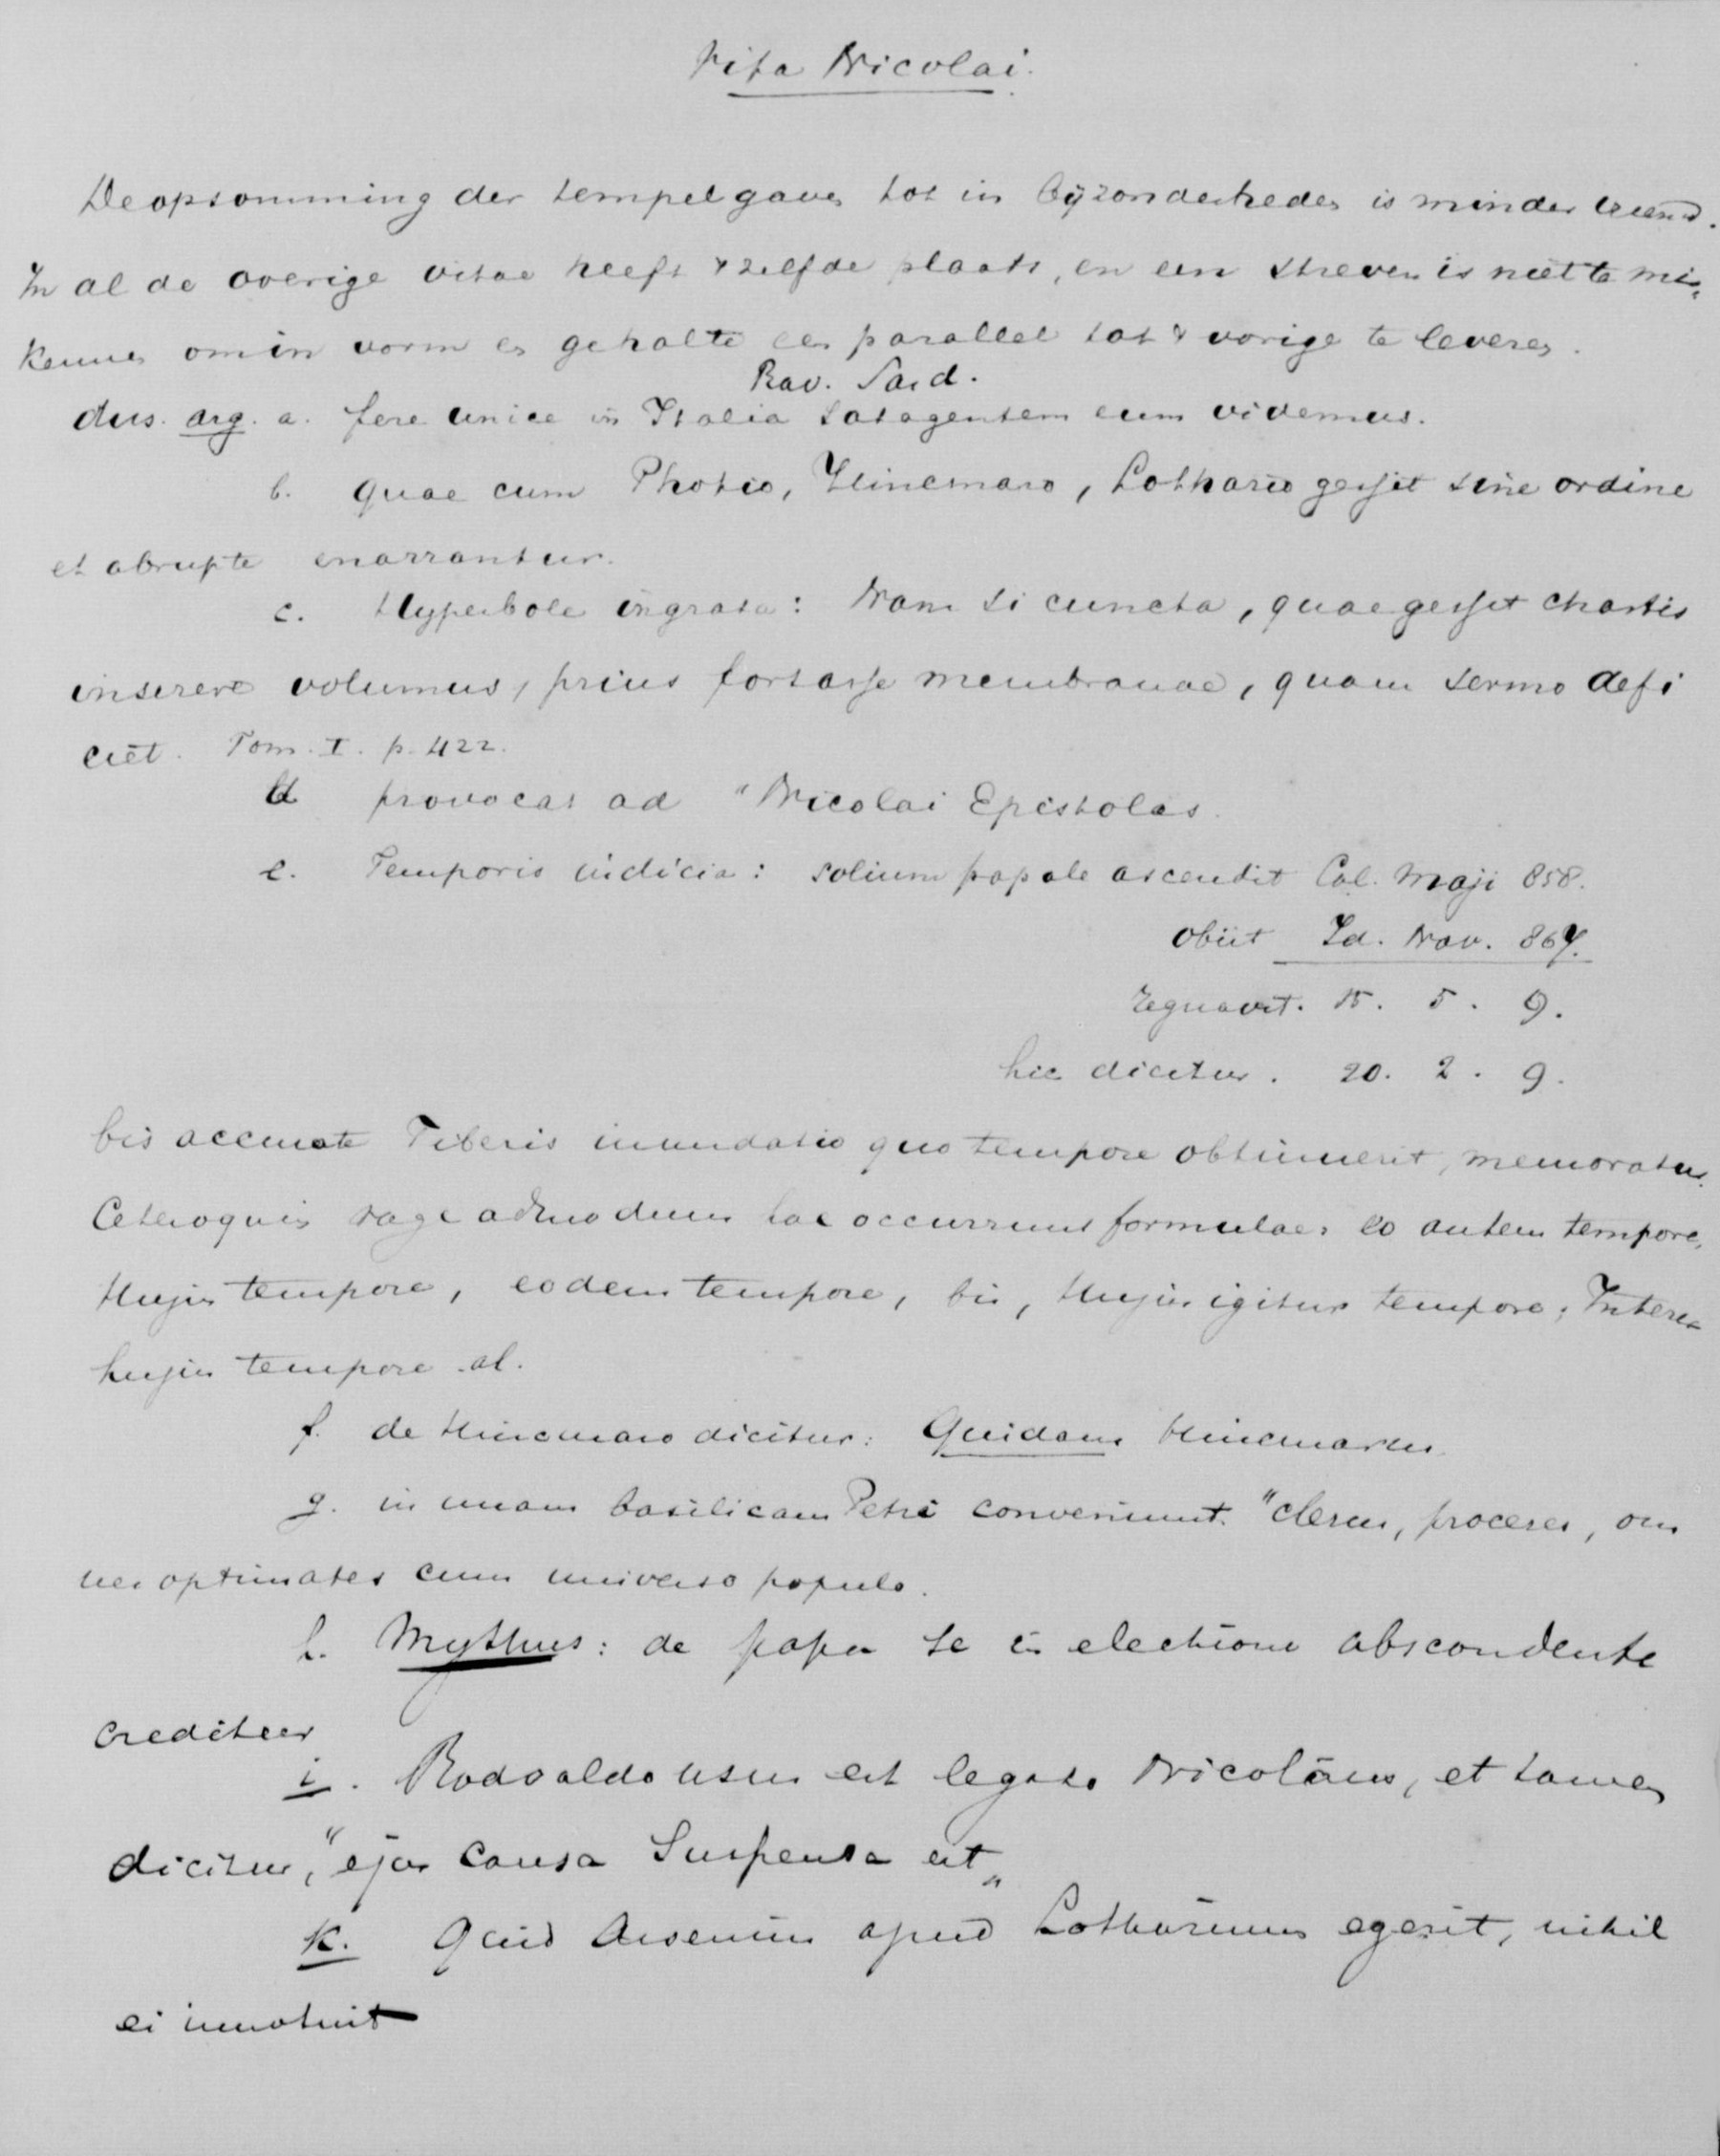 Vita Nicolai.
De opsomming der tempelgaven tot in bijzonderheden is minder
In al de overige vitae heeft 't zelfde plaats, en een streven is niet te mis„
kennen om in vorm en gehalte een parallel tot 't vorige te leveren.
Rav. Sard.
dus. arg. a. fere unice in Italia satagentem eum videmus.
b. quae cum Photio, Hincmaro, Lothario gessit sine ordine
et abrupte enarrantur.
c. Hyperbole ingrata: Nam si cuncta, quae gessit chartis
inserere volumus, prius fortasse membranae, quam sermo defi
ciet. Tom. I. p. 422.
d provocat ad "Nicolai Epistolas.
e. Temporis indicia: solium papale ascendit Cal. Maji 858.
obiit Id. Nov. 867.
regnavit. 15. 5. 9.
hic dicitur. 20. 2. 9.
bis accurate Tiberis inundatio quo tempore obtinuerit, memoratur.
Ceteroquin vage admodum hae occurrunt formulae: eo autem tempore,
Hujus tempore, eodem tempore, bis, Hujus igitur tempore, Interea
hujus tempore al.
f. de Hincmaro dicitur: Quidam Hincmarus.
g. in unam basilicam Petri conveniunt. "clerus, proceres, om
nes optimates cum universo populo.
h. Mythus: de papa se in electione abscondente
creditur
i. Rodoaldo usus est legato Nicolaus, et tamen
dicitur, "ejus causa suspensa est„
k. Quid Arsenius apud Lotharium egerit, nihil
ei innotuit